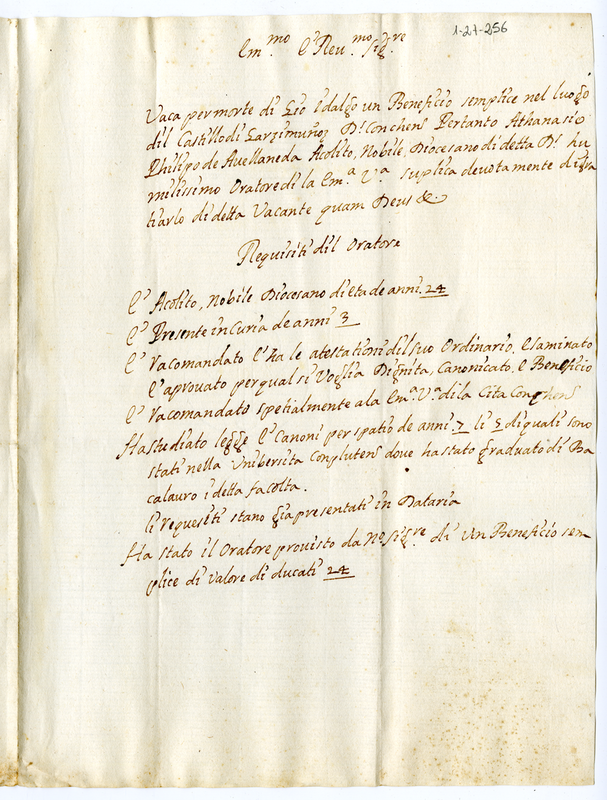 1-27-256
Em.mo e Reu.mo Sig.re
Vaca per morte di Gio Idalgo un Beneficio semplice nel luogo
dil Castillo di Garzimuñoz D.s Conchens Pertanto Athanasio
Philipo de Auellaneda Acolito, Nobile, Diocesano di detta D.s hu
milissimo Oratore di la Em.a V.a suplica deuotamente di gra
tiarlo di detta Vacante quam Deus &.
Requisiti dil Oratore
E' Acolito, Nobile Diocesano di eta de anni. 24
E' Presente in Curia de anni 3
E' racomandato e ha le atestationi dil suo Ordinario. Esaminato
e aprouato per qual si Voglia Dignita, Canonicato. e Beneficio
E' racomandato spetialmente a la Em.a V.a di la Cita Conchens
Ha studiato legge e Canoni per spatio de anni. 7 li 5 di quali sono
stati nella Unibersita Conplutens doue ha stato graduato di Ba
calauro i detta facolta.
li requesiti stano gia presentati in Dataria
Ha stato il Oratore prouisto da N.o Sig.re di Un Beneficio sem-
plice di Valore di ducati 24